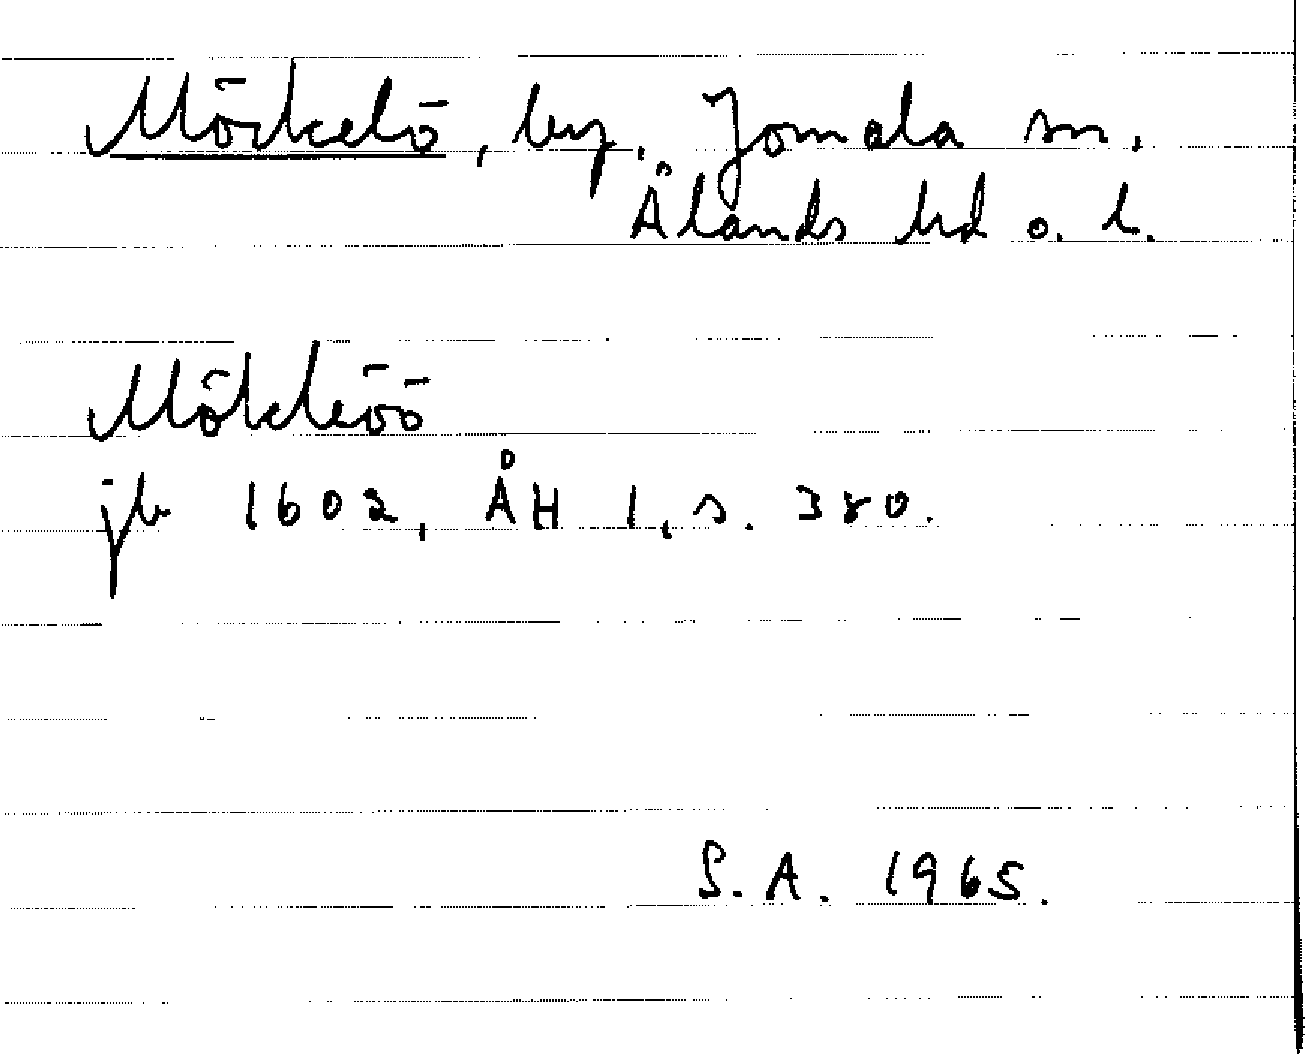 Mörckelö, by. Jomala sn.
Ålands hd o. l.
Mökleöö
jb 1602, ÅH 1, s. 380.
S.A. 1965.